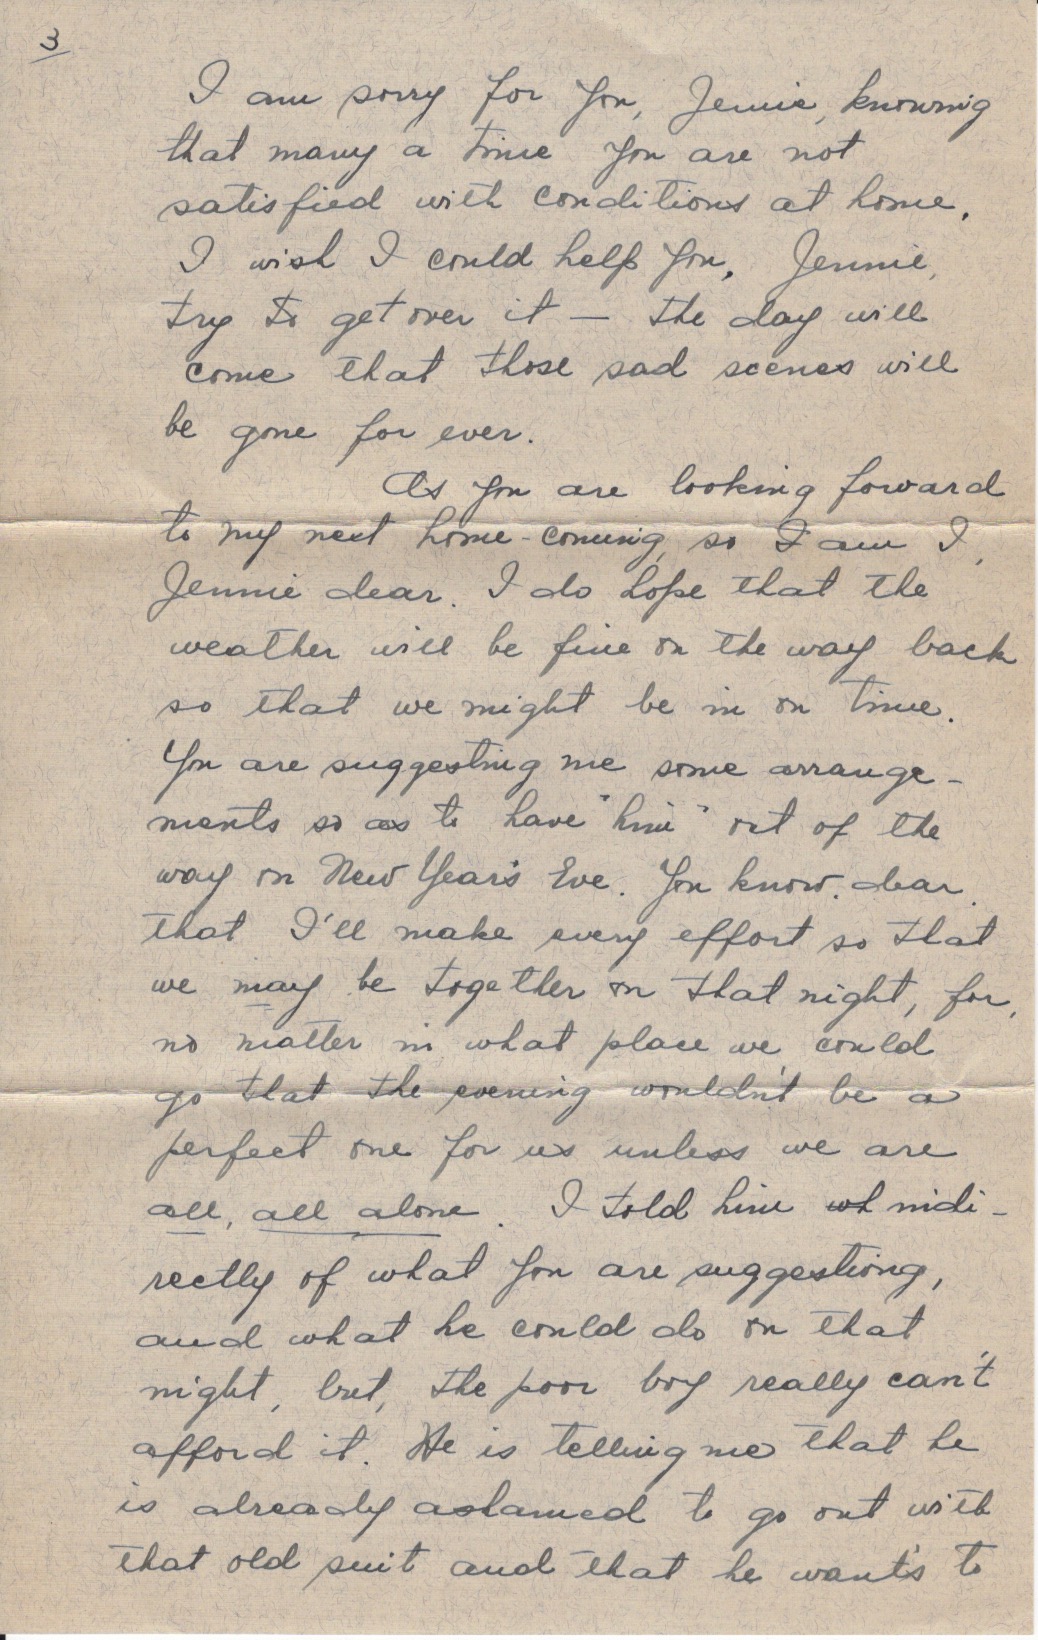 3
I am sorry for you, Jennie, knowing
that many a time you are not
satisfied with conditions at home.
I wish I could help you, Jennie,
try to get over it — the day will
come that those sad scenes will
be gone for ever.
As you are looking forward
to my next home-coming, so I am I,
Jennie dear. I do hope that the
weather will be fine on the way back
so that we might be in on time.
You are suggesting me some arrange-
ments so as to have "him" out of the
way on New Year's Eve. You know, dear,
that I'll make every effort so that
we may be together on that night, for,
no matter in what place we could
go that the evening wouldn't be a
perfect one for us unless we are
all, all alone. I told him wh indi-
rectly of what you are suggestiong,
and what he could do on that
night, but, the poor boy really can't
afford it. He is telling me that he
is already ashamed to go out with
that old suit and that he want's to